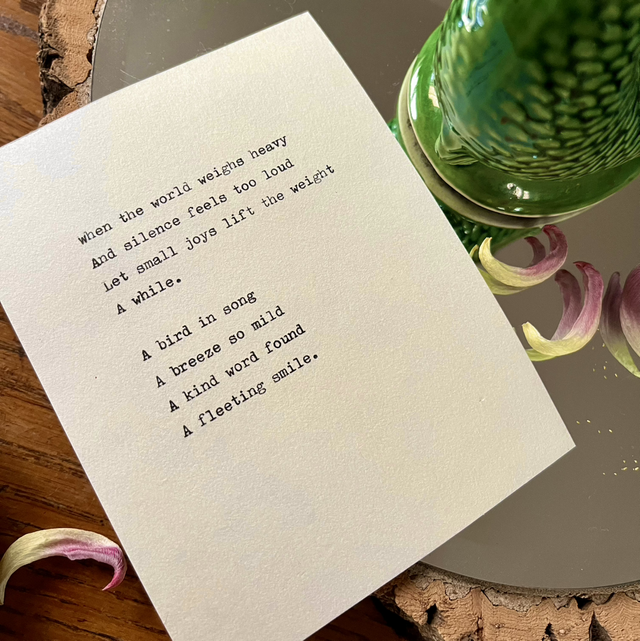 When the world weighs heavy
And silence feels too loud
Let small joys lift the weight
A while.
A bird in song
A breeze so mild
A kind word found
A fleeting smile.